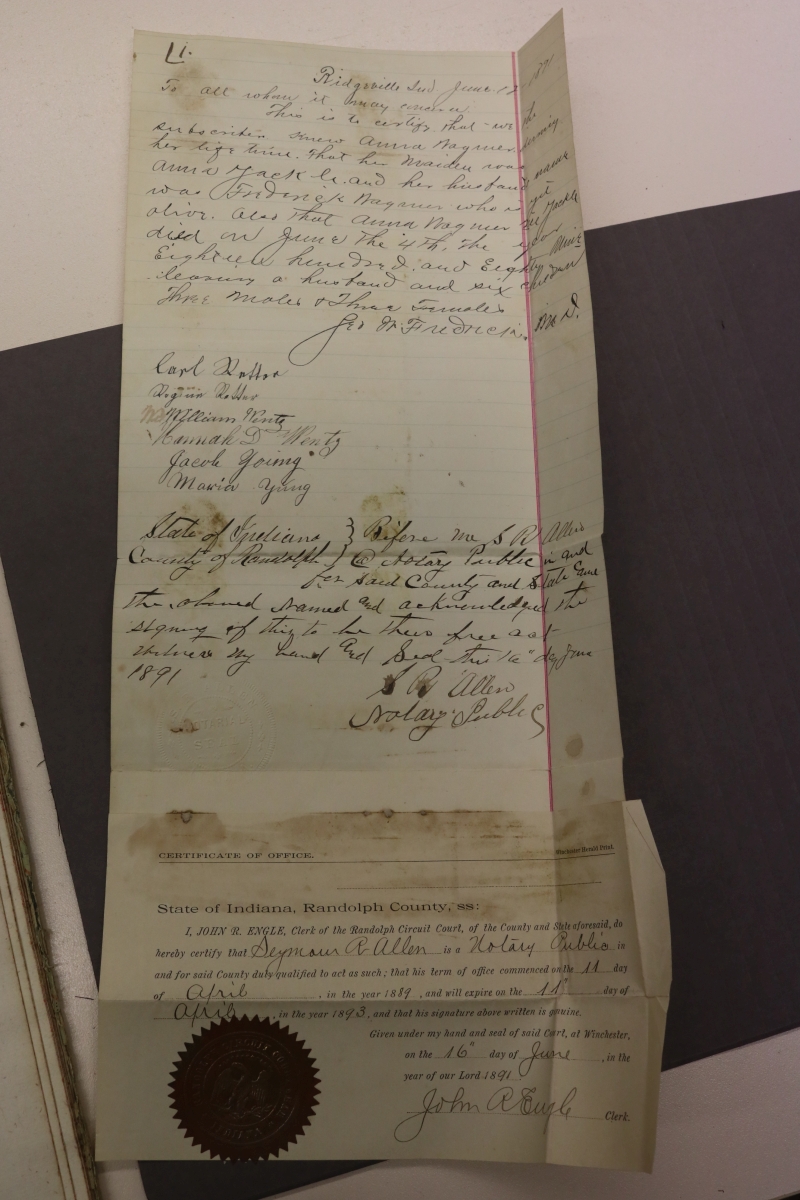 L1.
Ridgeville Ind June 12 1891
To all whom it may concern
This is to certify that we the
subscribers knew Anna Wagner during
her life time. That her Maiden name was
Anna Jackle. and her husband
was Frederick Wagner who is yet
alive. Also that Anna Wagner nee Jackle
died on June the 4th, the year
Eighteen hundred and Eighty Nine
leaving a husband and six children
Three Males & Three Females
Geo W. Fredricks M D.
Carl Rotter
Regina Rotter
William Wentz
Hannah D Wentz
Jacob
Maria Yung
State of Indiana } Before me S R Allen
County of Randolph } a Notary Public in and
for said County and State came
the above Named and acknowledged the
signing of this to be their free act
witness my hand and Seal this 16" day June
1891
S R Allen
Notary Public
CERTIFICATE OF OFFICE.
Winchester Herald Print.
State of Indiana, Randolph County, ss:
I, JOHN R. ENGLE, Clerk of the Randolph Circuit Court, of the County and State aforesaid, do
hereby certify that Seymour R Allen is a Notary Public in
and for said County duly qualified to act as such; that his term of office commenced on the 11 day
of April, in the year 1889, and will expire on the 11" day of
April, in the year 1893, and that his signature above written is genuine.
Given under my hand and seal of said Court, at Winchester,
on the 16" day of June, in the
year of our Lord 1891
John R Engle Clerk.